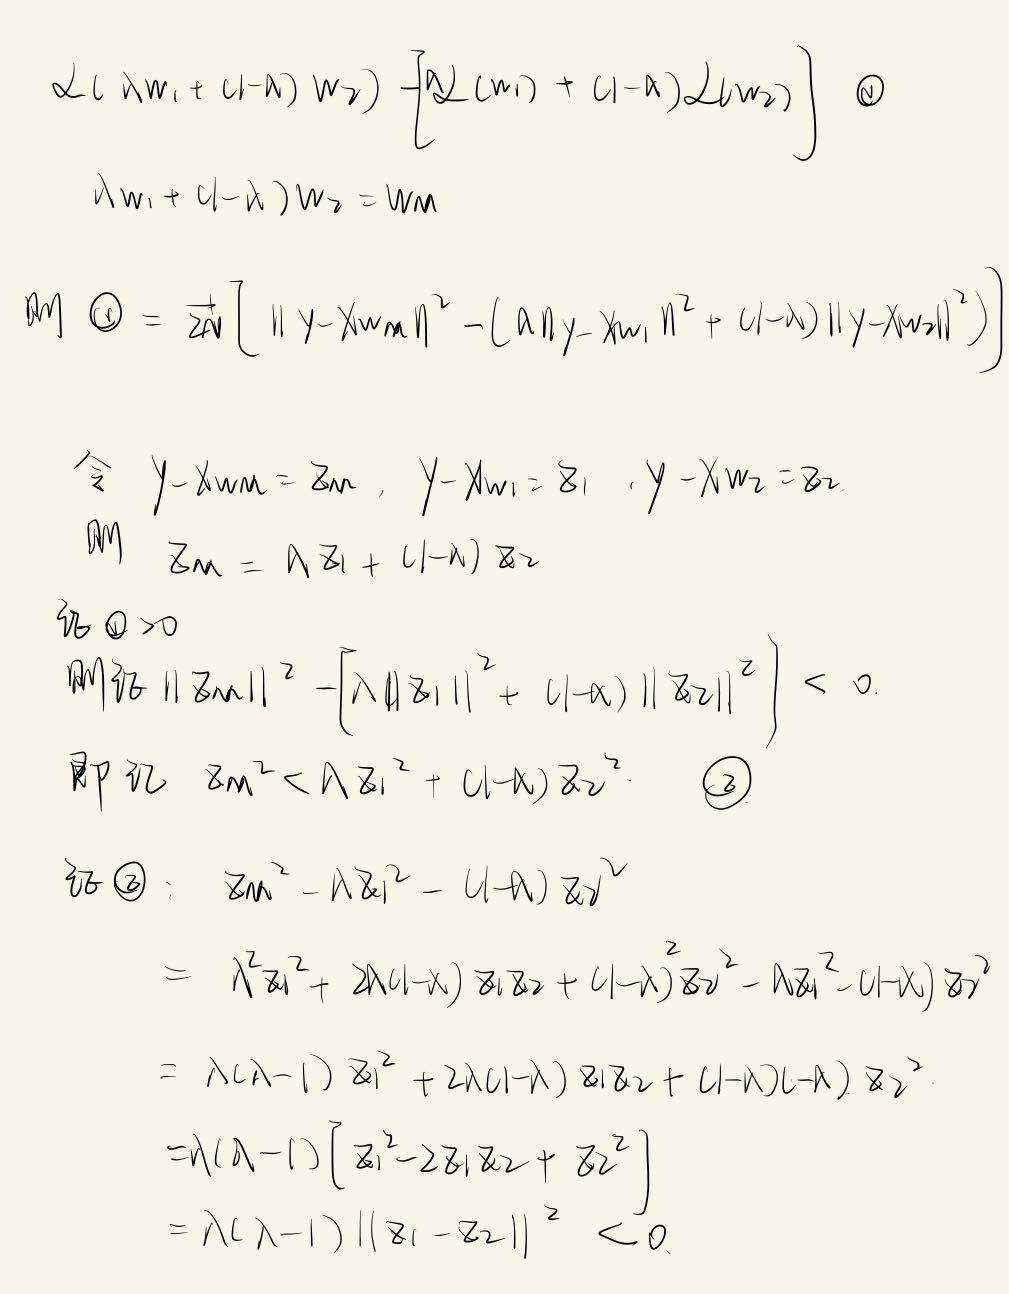 L(λw₁+(1-λ)w₂) -[λL(w₁) + (1-λ)L(w₂)] ①
λw₁+(1-λ)w₂=wm
则 ① = 1/2N [ ||y-Xwm||² -(λ||y-Xw₁||² + (1-λ)||y-Xw₂||²)]
令 y-Xwm = zm , y-Xw₁ = z₁ , y-Xw₂ = z₂
则 zm = λz₁ + (1-λ)z₂
证①>0
则证 ||zm||² -[λ||z₁||² + (1-λ)||z₂||²] < 0.
即证 zm² < λz₁² + (1-λ)z₂² ②
证②: zm² - λz₁² - (1-λ)z₂²
= λ²z₁² + 2λ(1-λ)z₁z₂ + (1-λ)²z₂² - λz₁² -(1-λ)z₂²
= λ(λ-1)z₁² + 2λ(1-λ)z₁z₂ + (1-λ)(-λ)z₂²
=λ(λ-1)[z₁²-2z₁z₂+z₂²]
= λ(λ-1)||z₁-z₂||² <0.